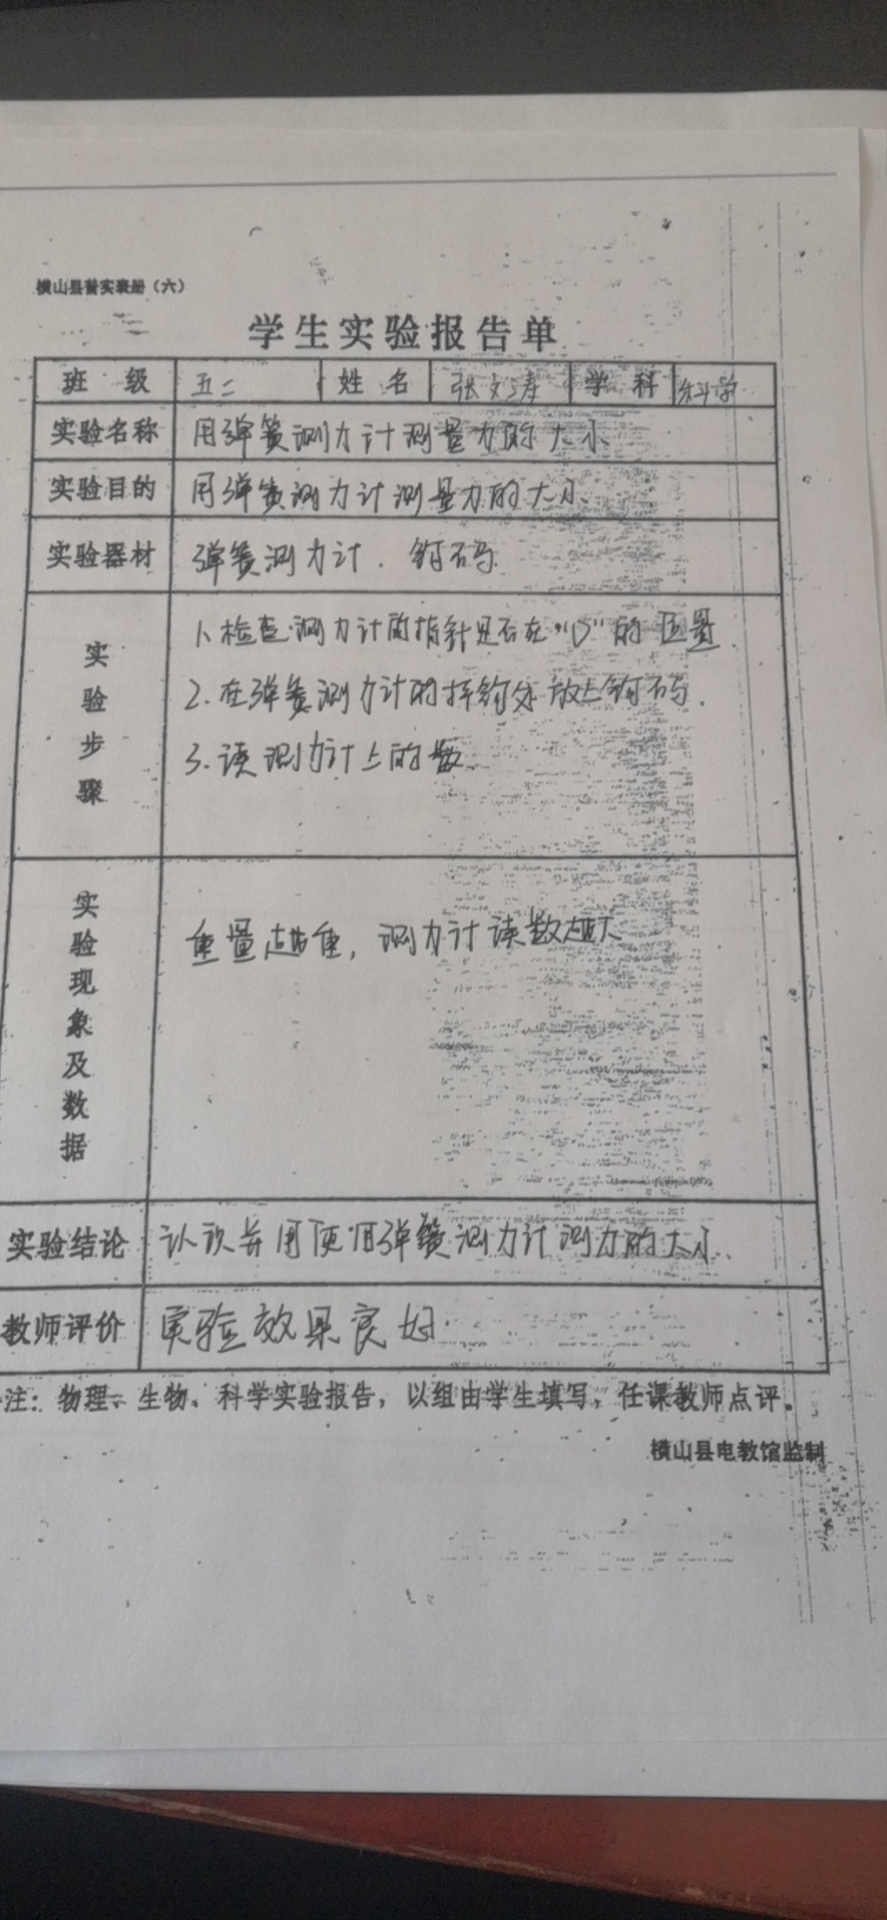 横山县普实表册（六）
学生实验报告单
班 级 五二 姓 名 张文涛 学 科 科学
实验名称 用弹簧测力计测量力的大小
实验目的 用弹簧测力计测量力的大小.
实验器材 弹簧测力计. 钩码
实验步骤 1、检查测力计的指针是否在“0”的位置
2.在弹簧测力计的挂钩处放上钩码.
3.读测力计上的数
实验现象及数据 重量越重，测力计读数越大
实验结论 认识并用使用弹簧测力计测力的大小.
教师评价 实验效果良好
注：物理、生物、科学实验报告，以组由学生填写，任课教师点评。
横山县电教馆监制